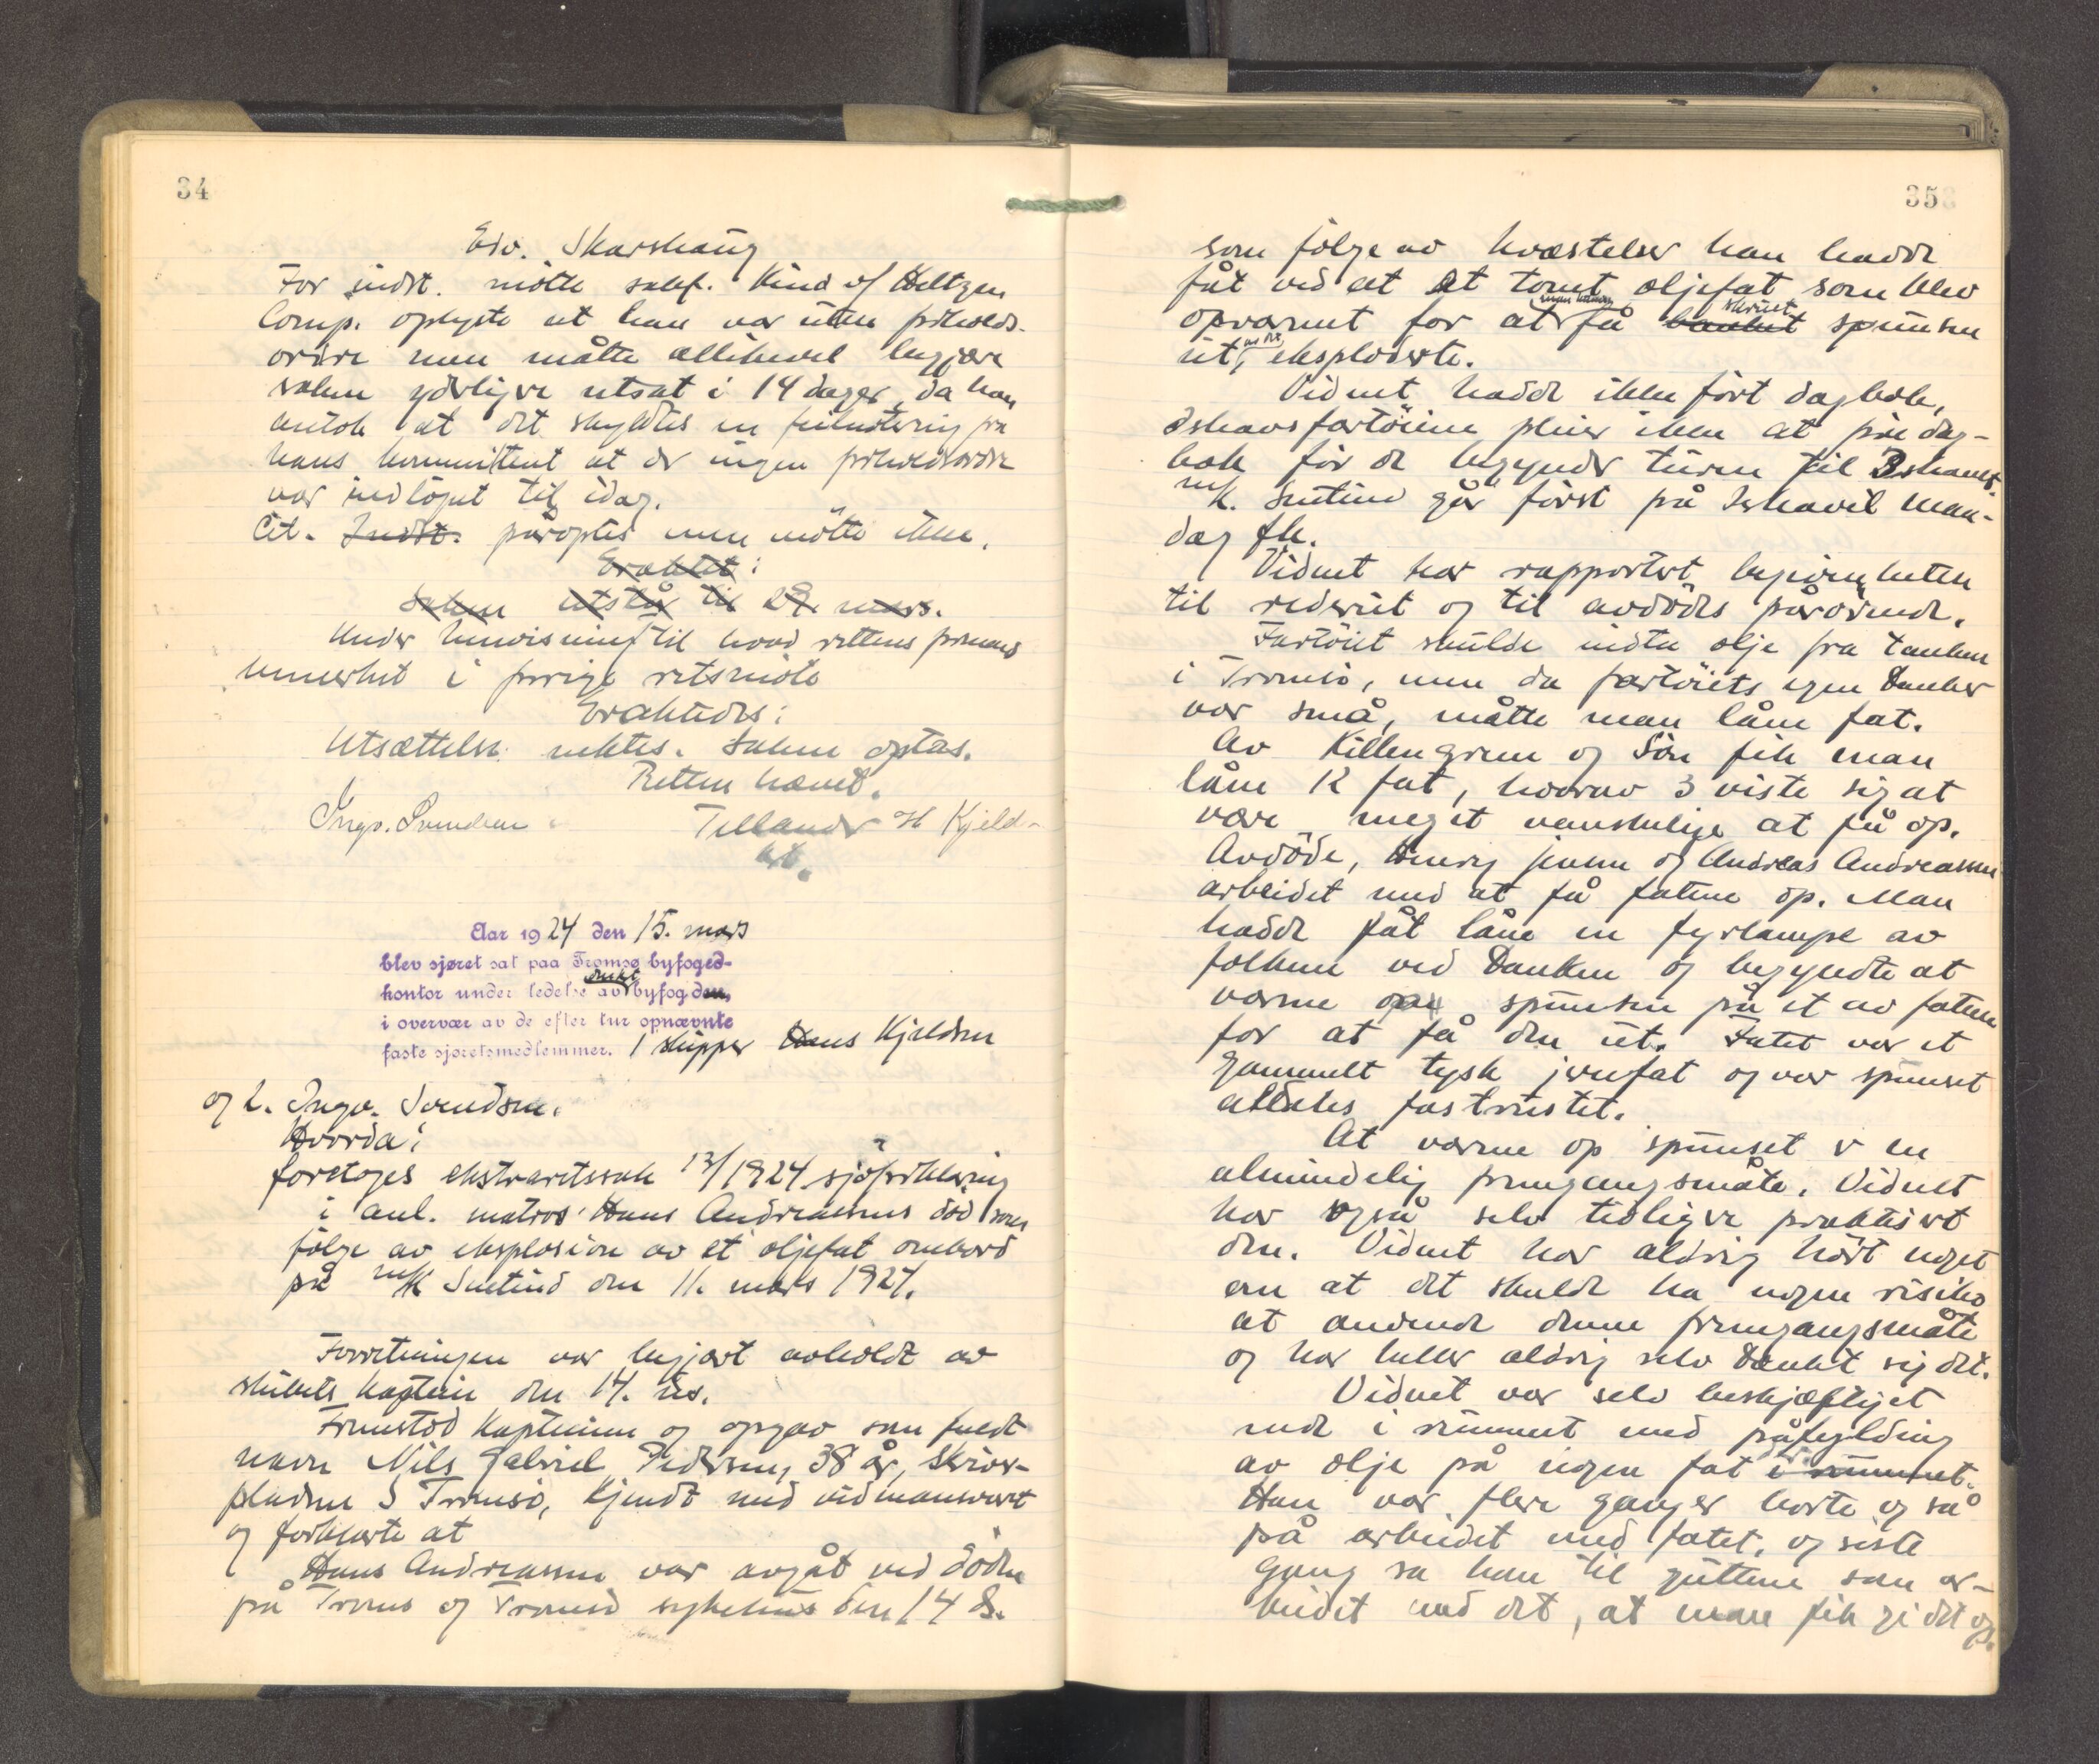 34
Edv. Skarshaug
For indst. møtte sakf. Kind of Heltzen
Comp. oplyste at han var uten forholds-
ordre men måtte allikevel begjære
saken yderligere utsat i 14 dager, da han
antok at det skyldtes en feilnotering fra
hans kommittent at der ingen forholdsordre
var indløpet til idag.
Cit. Indst. påroptes men møtte ikke.
Eraktet:
Saken utstår til 29. mars.
Under henvisning til hvad rettens formand
bemerket i forrige retsmøte
Eraktedes:
Utsættelse nektes. Saken optas.
Retten hævet.
Ingv. Svendsen Tellander H Kjeld-
Aar 1924 den 15. mars
blev sjøret sat paa Tromsø byfoged-
kontor under ledelse av byfogden,
i overvær av de efter tur opnævnte
faste sjøretsmedlemmer. 1 skipper Hans Kjeldsen
og 2. Ingv. Svendsen.
Hvorda:
foretoges ekstraretssak 13/1924 sjøforklaring
i anl. matros Hans Andreassens død som
følge av eksplosion av et oljefat ombord
på m/k Snetind den 11. mars 1924.
Forretningen var begjært avholdt av
skibets kaptein den 14. ds.
Fremstod kapteinen og opgav som fuldt
navn Nils Gabriel Pedersen, 38 år, Skriver-
pladsen 5 Tromsø, kjendt med vidneansvaret
og forklarte at
Hans Andreassen var avgåt ved døden
på Troms og Tromsø sykehus den 14 ds.
353
som følge av kvæstelser han hadde
fåt ved at et tomt oljefat som blev
skruet
opvarmet for at få banket spunsen
ut, eksploderte.
Vidnet hadde ikke ført dagbok,
Ishavsfartøiene pleier ikke at føre dag-
bok før de begynder turen til Ishavet.
m/k. Snetind går først på Ishavet man-
dag fk.
Vidnet har rapportert begivenheten
til rederiet og til avdødes pårørende.
Fartøiet skulde indta olje fra tanken
i Tromsø, men da fartøiets egen tanker
var små, måtte man låne fat.
Av Killengreen og Søn fik man
låne 12 fat, hvorav 3 viste sig at
være meget vanskelige at få op.
Avdøde, Henry Jensen og Andreas Andreassen
arbeidet med at få fatene op. Man
hadde fåt låne en fyrlampe av
folkene ved tanken og begyndte at
varme op spunsen på et av fatene
for at få den ut. Fatet var et
gammelt tysk jernfat og var spunset
aldeles fastrustet.
At varme op spunset er en
almindelig fremgangsmåte. Vidnet
har også selv tidligere praktisert
den. Vidnet har aldrig hørt noget
om at det skulde ha nogen risiko
at anvende denne fremgangsmåte
og har heller aldrig selv tænkt sig det.
Vidnet var selv beskjæftiget
nede i rummet med påfylding
av olje på nogen fat i rummet.
Han var flere ganger borte og så
på arbeidet med fatet, og siste
gang sa han til guttene som ar-
beidet med det, at man fik gi det op.